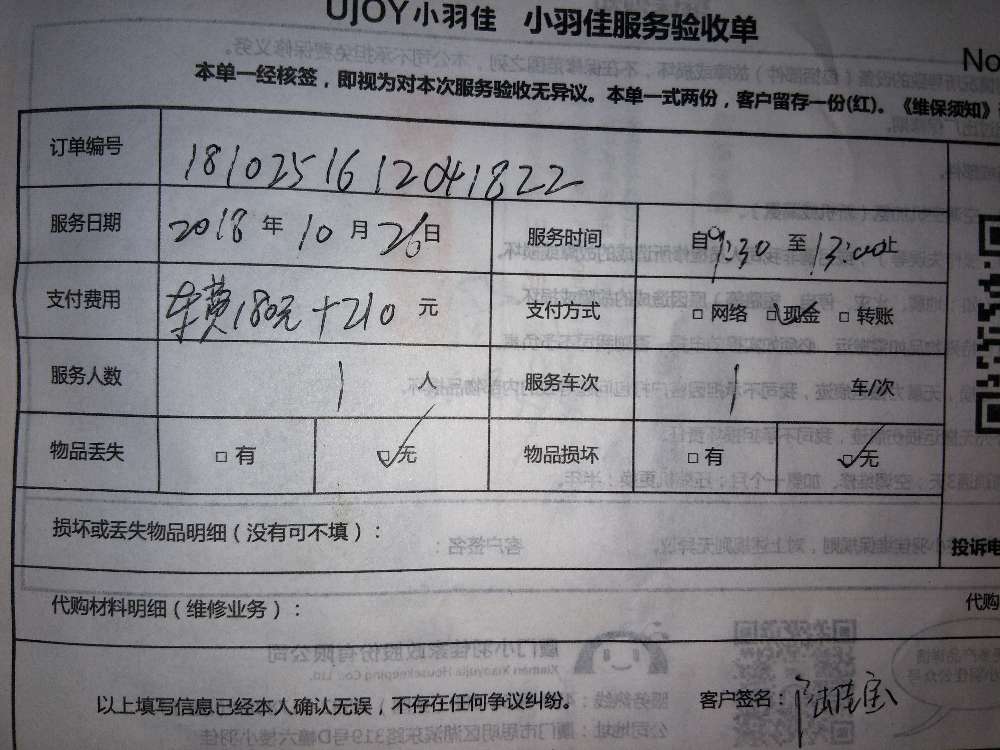 UJOY小羽佳 小羽佳服务验收单
No
本单一经核签，即视为对本次服务验收无异议。本单一式两份，客户留存一份(红)。《维保须知》
订单编号 1810251612041822
服务日期 2018 年 10 月 26 日 服务时间 自 9:30 至 13:00 止
支付费用 车费180元+210 元 支付方式 □ 网络 ☑ 现金 □ 转账
服务人数 1 人 服务车次 1 车/次
物品丢失 □ 有 ☑ 无 物品损坏 □ 有 ☑ 无
损坏或丢失物品明细（没有可不填）：
投诉电
代购材料明细（维修业务）：
代购
以上填写信息已经本人确认无误，不存在任何争议纠纷。 客户签名：